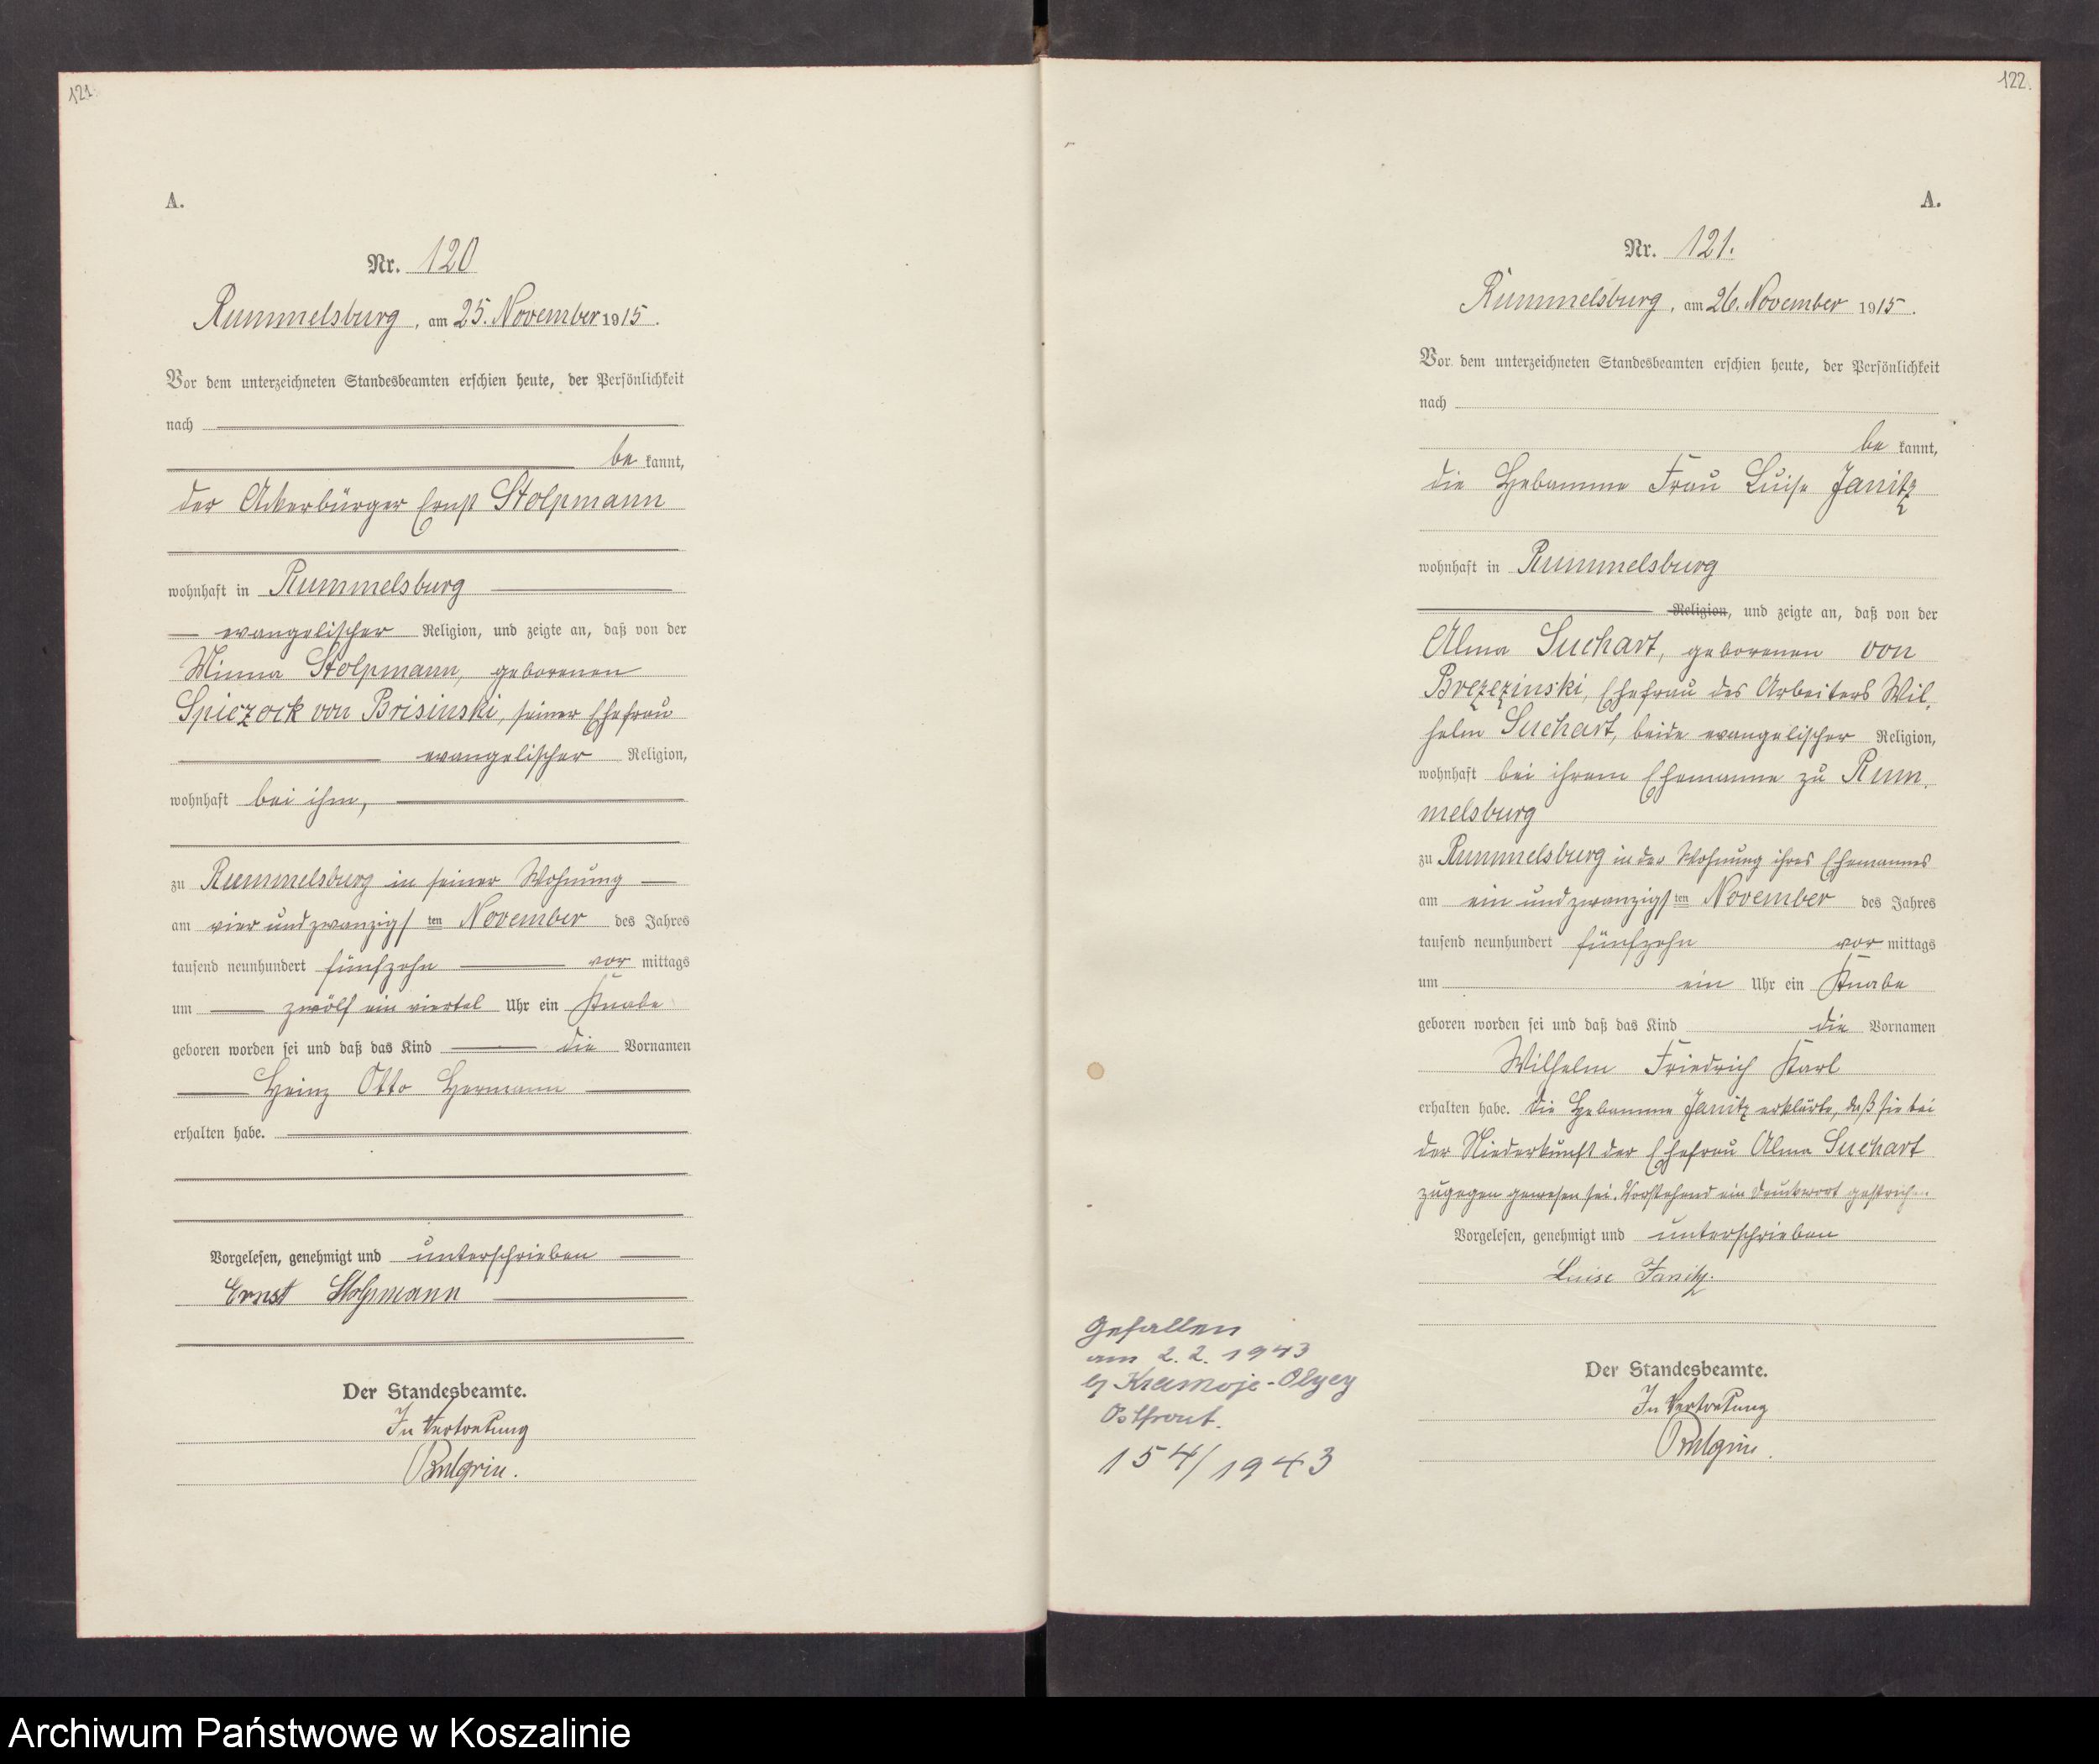 121
A.
Nr. 120
Rummelsburg, am 25. November 1915.
Vor dem unterzeichneten Standesbeamten erschien heute, der Persönlichkeit
nach
be kannt,
der Ackerbürger Ernst Stolpmann
wohnhaft in Rummelsburg
evangelischer Religion, und zeigte an, daß von der
Minna Stolpmann, geborenen
Spiczock von Brisinski, seiner Ehefrau
evangelischer Religion,
wohnhaft bei ihm,
zu Rummelsburg in seiner Wohnung
am vier und zwanzigsten November des Jahres
tausend neunhundert fünfzehn vor mittags
um zwölf ein viertel Uhr ein Knabe
geboren worden sei und daß das Kind die Vornamen
Heinz Otto Hermann
erhalten habe.
Vorgelesen, genehmigt und unterschrieben
Ernst Stolpmann
Der Standesbeamte.
In Vertretung
Bulgrin.
122.
A.
Nr. 121.
Rummelsburg, am 26. November 1915.
Vor dem unterzeichneten Standesbeamten erschien heute, der Persönlichkeit
nach
be kannt,
die Hebamme Frau Luise Janitz
wohnhaft in Rummelsburg
Religion, und zeigte an, daß von der
Alma Suchart, geborenen von
Brezezinski, Ehefrau des Arbeiters Wil-
helm Suchart, beide evangelischer Religion,
wohnhaft bei ihrem Ehemanne zu Rum-
melsburg
zu Rummelsburg in der Wohnung ihres Ehemannes
am ein und zwanzigsten November des Jahres
tausend neunhundert fünfzehn vor mittags
um ein Uhr ein Knabe
geboren worden sei und daß das Kind die Vornamen
Wilhelm Friedrich Karl
erhalten habe. Die Hebamme Janitz erklärte, daß sie bei
der Niederkunft der Ehefrau Alma Suchart
zugegen gewesen sei. Vorstehend ein Druckwort gestrichen.
Vorgelesen, genehmigt und unterschrieben
Luise Janitz.
Der Standesbeamte.
In Vertretung
Bulgrin.
Gefallen
am 2. 2. 1943
Ostfront.
154/1943
Archiwum Państwowe w Koszalinie